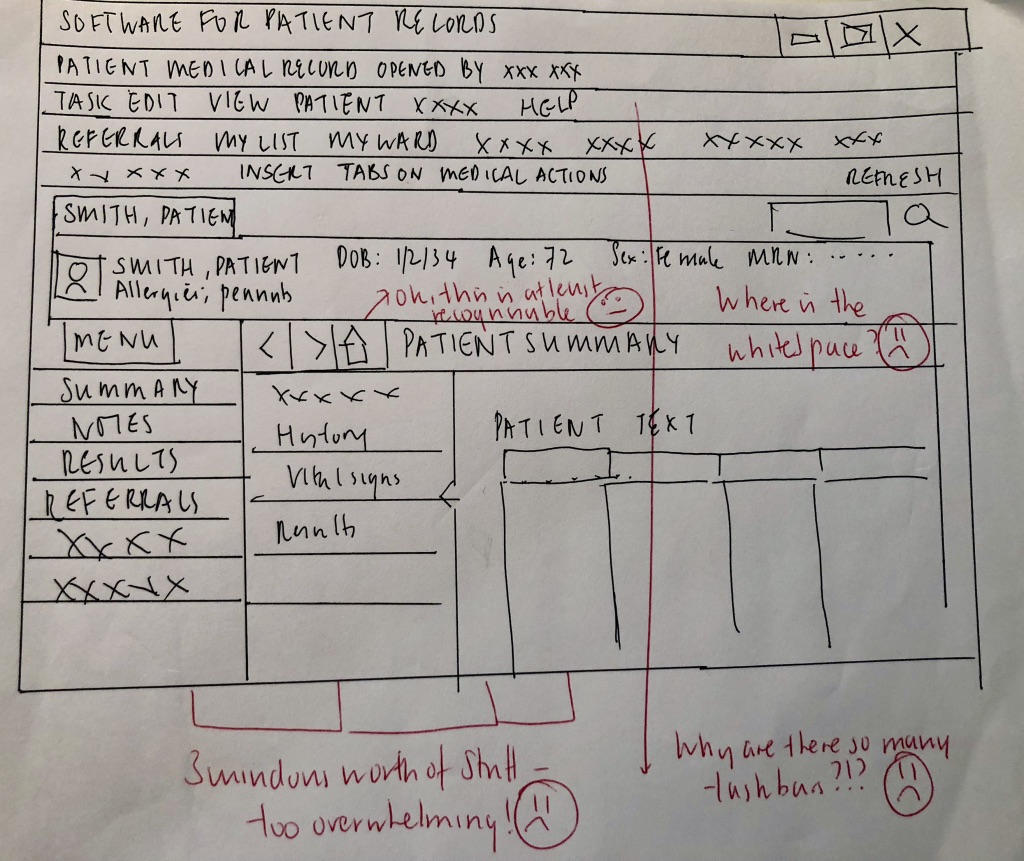 SOFTWARE FOR PATIENT RECORDS
X
PATIENT MEDICAL RECORD OPENED BY xxx xxx
TASK EDIT VIEW PATIENT XXXX HELP
REFERRALS MY LIST MY WARD XXXX XXXX XXXXX XXX
X X X X X INSERT TABS ON MEDICAL ACTIONS REFRESH
SMITH, PATIEN
SMITH, PATIENT DOB: 1/2/34 Age: 72 Sex: Female MRN: .....
Allergies:
ok, this is at least
recognisable
Where is the
whitespace?
MENU < > PATIENT SUMMARY
SUMMARY
NOTES
RESULTS
REFERRALS
XXXX
XXXXX
XXXXX
History
Vital signs
Results
<
PATIENT TEXT
3 windows worth of stuff -
too overwhelming!
Why are there so many
taskbars?!?